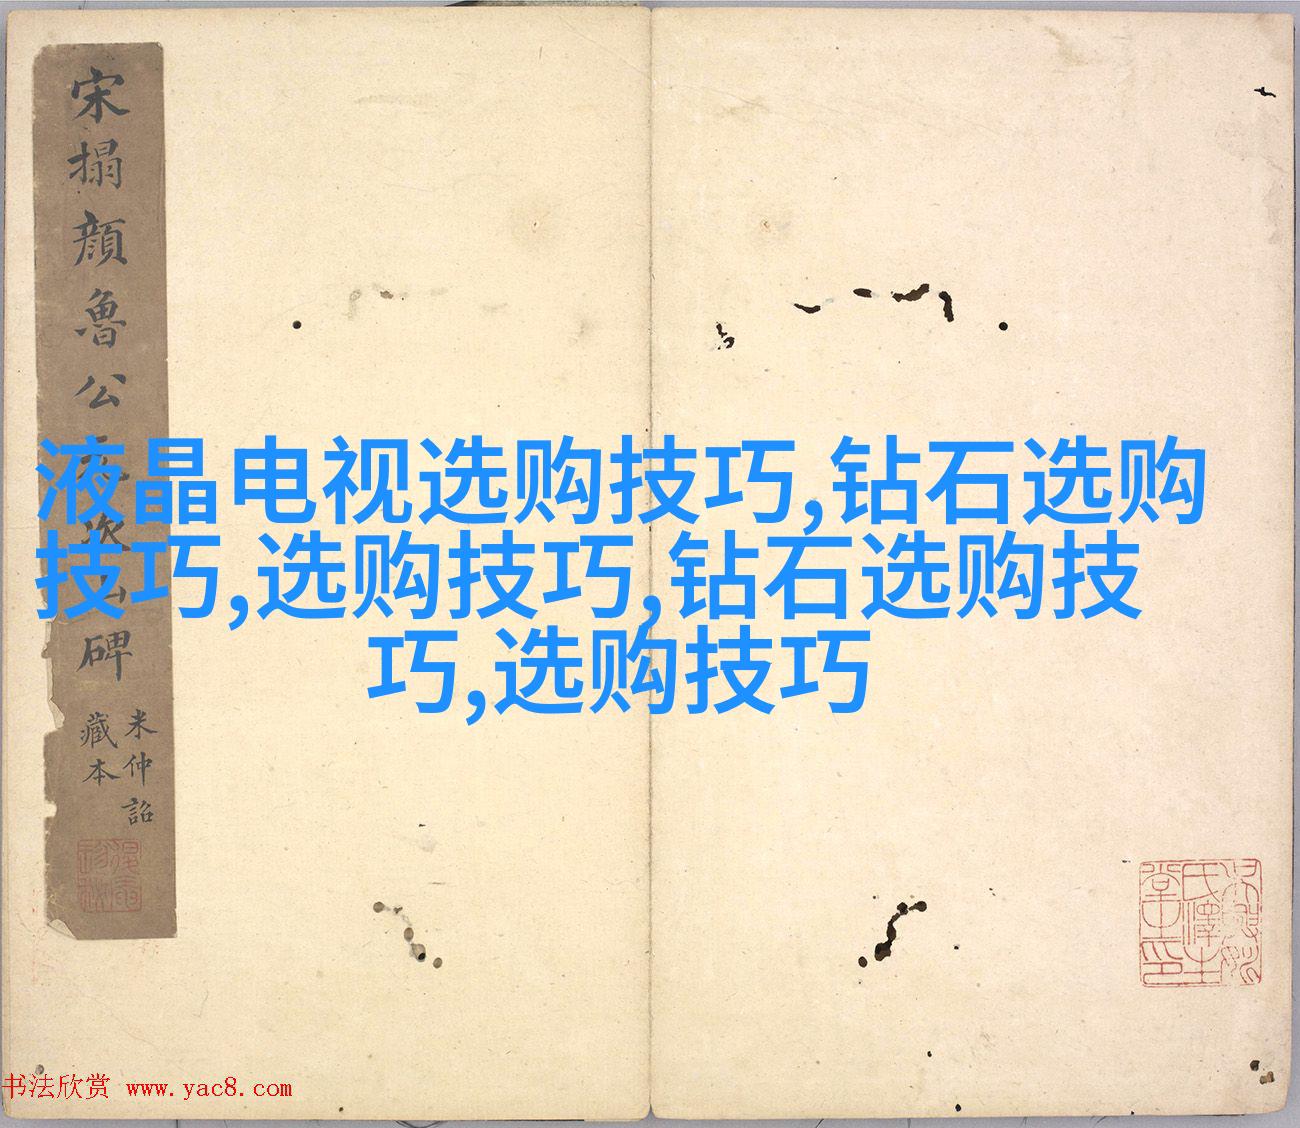 宋搨顏魯公
碑
米仲詔
藏本
液晶电视选购技巧,钻石选购
技巧,选购技巧,钻石选购技
巧,选购技巧
书法欣赏 www.yac8.com